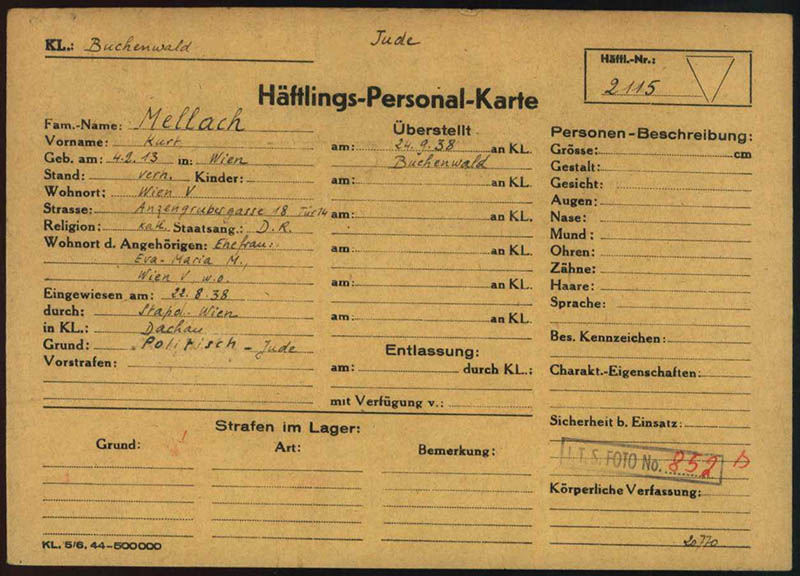 KL.: Buchenwald
Jude
Häftl.-Nr.:
2115
Häftlings-Personal-Karte
Fam.-Name: Mellach
Vorname: Kurt
Geb. am: 4.2.13 in: Wien
Stand: verh. Kinder:
Wohnort: Wien V
Strasse: Anzengrubergasse 18 Tür 14
Religion: kath. Staatsang.: D.R.
Wohnort d. Angehörigen: Ehefrau:
Eva-Maria M.,
Wien V w.o.
Eingewiesen am: 22.8.38
durch: Stapo-Wien
in KL.: Dachau
Grund: Politisch - Jude
Vorstrafen:
Überstellt
am: 24.9.38 an KL.
Buchenwald
am: an KL.
am: an KL.
am: an KL.
am: an KL.
am: an KL.
Entlassung:
am: durch KL.:
mit Verfügung v.:
Personen-Beschreibung:
Grösse: cm
Gestalt:
Gesicht:
Augen:
Nase:
Mund:
Ohren:
Zähne:
Haare:
Sprache:
Bes. Kennzeichen:
Charakt.-Eigenschaften:
Sicherheit b. Einsatz:
I.T.S. FOTO No. 852
Körperliche Verfassung:
Strafen im Lager:
Grund: Art: Bemerkung:
KL. 5/6. 44-500000